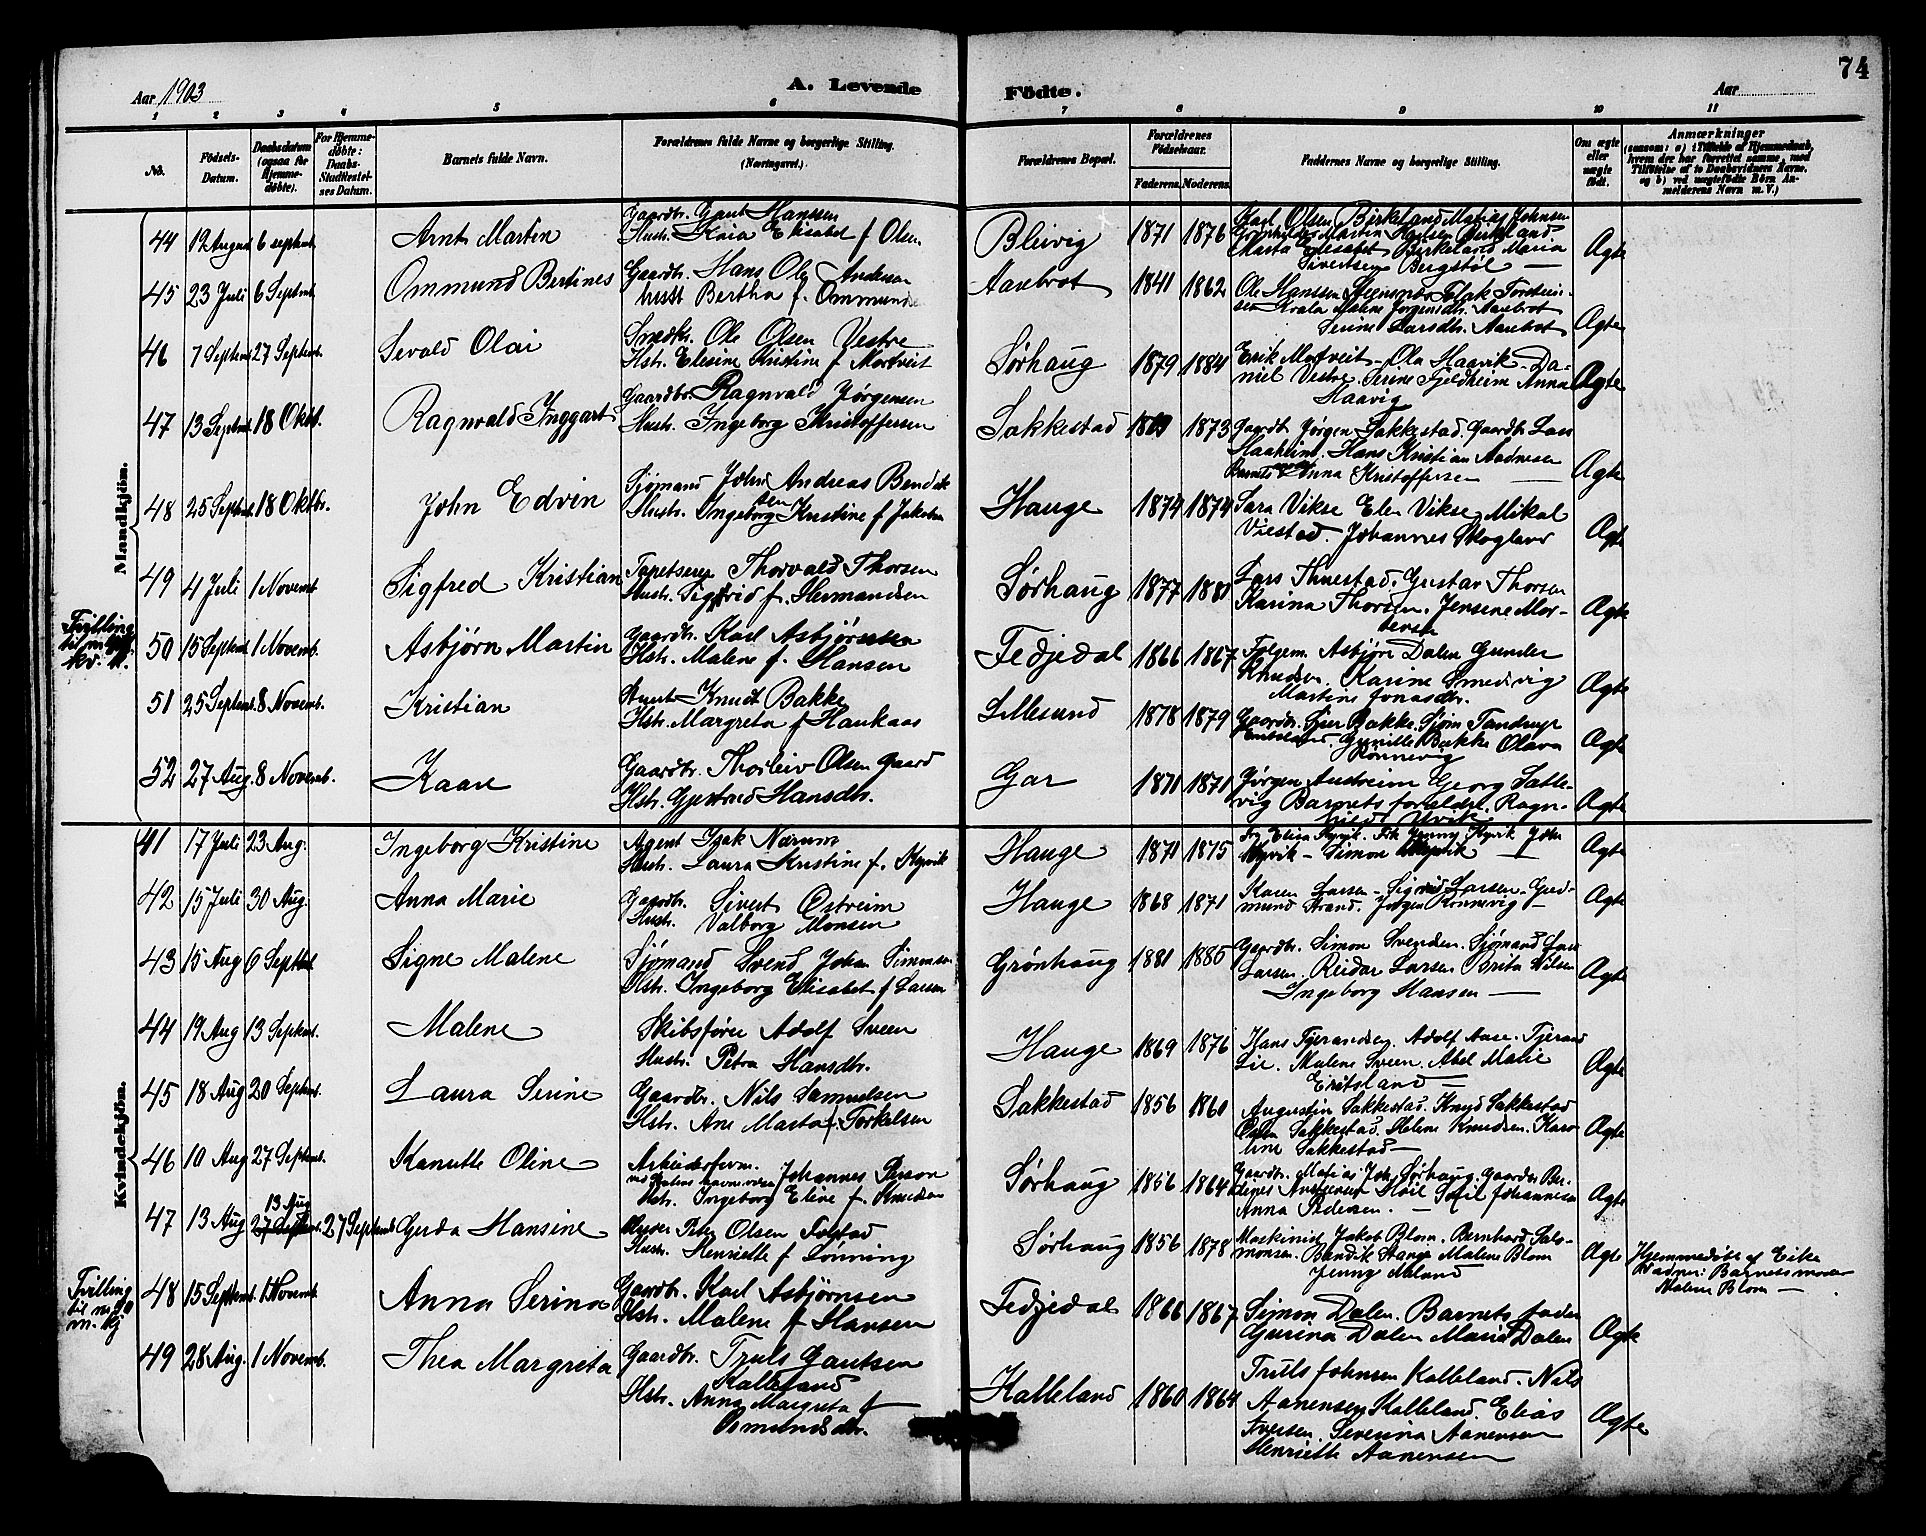 74
Aar 1903
A. Levende Födte.
Aar
1 2 3 4 5 6 7 8 9 10 11
No.
Födsels-Datum.
Daabsdatum (ogsaa for Hjemmedöbte).
For Hjemmedöbte: Daabs-Stadfæstelses Datum.
Barnets fulde Navn.
Forældrenes fulde Navne og borgerlige Stilling. (Næringsvei.)
Forældrenes Bopæl.
Forældrenes Födselsaar.
Faderens. Moderens.
Faddernes Navne og borgerlige Stilling.
Om ægte eller uægte födt.
Anmærkninger
(saasom: a) i Tilfælde af Hjemmedaab, hvem der har forrettet samme, med Tilföielse af to Daabsvidners Navne, og b) ved uægtefödte Börn Anmelderens Navn m. V.)
Mandkjön.
44 12 August 6 septemt. Arnt Martin
Gaardbr. Gaut Hanssen
Hustr. Kaia Elisabet f Olsen
Bleivig 1871 1876
Karl Olsen Birkeland Matias Johnsen
Martin Birkeland
Marta Elisabet Birkeland Maria
Sivertsen Bergstøl —
Ægte
45 23 Juli 6 Septmt. Ommund Bertines
Gaardbr. Hans Ole Andersen
hustr Bertha f. Ommunds
Aarebrot 1841 1862
Ole Hanssen Falk Torstein-
sen Kvala Malene Jørgensdtr. Aarebrot
Serine Larsdtr. Aarebrot
Ægte
46 7 Septemt. 27 Septemt. Sevald Olai
Snedkr. Ole Olsen Vestre
Hst. Elesine Kristine f Mortveit
Sørhaug 1879 1884
Erik Mortveit - Ola Haavik - Da-
niel Vestre. Serine Fjeldheim Anna
Haavig
Ægte
47 13 Septmt. 18 Oktb. Ragnvald Inggart
Gaardbr. Ragnvald Jørgensen
Hustr. Ingeborg Kristoffersen
Sakkestad 1873
Gaardb. Jørgen Sakkestad. Gaardb. Lars
Haaheim. Hans Kristian Aadnesen
Barnets Anna Kristoffersen
Ægte
48 25 Septmt. 18 Oktbr. John Edvin
Sjømand John Andreas Bendik
sen
Hustr. Ingeborg Kristine f Jakobsen
Hauge 1874 1874
Sara Vikse Elen Vikse Mikal
Viestad. Johannes Skogland
Ægte
49 4 Juli 1 Novemt Sigfred Kristian
Tapetserer Thorvald Thorsen
Hustr. Sigfrid f. Hermandsen
Sørhaug 1877 1881
Lars Thuestad. Gustav Thorsen
Karina Thorsen. Jensene Mor-
tensen
Ægte
Tvilling
til no 48
kv. kj.
50 15 Septemt. 1 Novemb. Asbjørn Martin
Gaardbr. Karl Asbjørnsen
Hstr. Malene f. Hansen
Fedjedal 1866 1867
Folgem. Asbjørn Dalen Gunder
Knudsen. Karine Smedvig
Martine Jonasdtr.
Ægte
51 25 Septemt. 8 Novemb. Kristian
Knut Bakke
Hstr. Margreta f Haukaas
Lillesund 1878 1879
Gaardbr. Sjur Bakke. Sjøm Tandrup
Emtsland. Gunille Bakke Olava
Rønnevig
Ægte
52 27 Aug. 8 Novemb. Kaare
Gaardbr. Thorleiv Olsen Gaard
Hstr. Gjertrud Hansdtr.
Gar 1870 1871
Jørgen Austreim Georg Salle-
vig Barnets forældre. Ragn-
hild Utvik
Ægte
Kvindekjön.
41 17 Juli 23 Aug: Ingeborg Kristine
Agent Isak Nærum
Hustr. Laura Kristine f. Kyvik
Hauge 1870 1875
Fru Elisa Kyvik. Frk Jenny Kyvik John
Kyvik - Simon
Ægte
42 15 Juli 30 Aug. Anna Marie
Gaardb. Sivert Østreim
Hustr. Valborg Monsen
Hauge 1868 1871
Karen Larsen - Sigvald Larsen - Gud-
mund Strand. Jørgen Rønnevig
Ægte
43 15 Aug 6 Septbt Signe Malene
Sjömand Svend Johan Simonsen
Hstr. Ingeborg Elisabet f Larsen
Grönhaug 1881 1885
Gaardbr. Simon Svendsen. Sjömand Lars
Larsen. Reidar Larsen Brita Nilsen
Ingeborg Hansen —
Ægte
44 19 Aug 13 Septemt. Malene
Skibsfører Adolf Sveen
Hustr. Petra Hansdtr.
Hauge 1869 1876
Hans Tjerandsen. Adolf Aase. Tjerand
Lie. Malene Sveen. Abel Marie
Eritsland —
Ægte
45 18 Aug 20 Septemt. Laura Serine
Gaardbr. Nils Samuelsen
Hstr. Ane Marta f. Torkelsen
Sakkestad 1856 1860
Augustin Sakkestad. Knud Sakkestad
Sakkestad. Helene Knudsen. Karo-
line Sakkestad —
Ægte
46 10 Aug 27 Septemt. Kanutte Oline
Arbeidsform. Johannes Person
Hstr. Ingeborg Eline f. Knudsen
Sørhaug 1856 1864
Gaardbr. Matias Joh. Sørhaug. Gaardbr Ber-
Johannesen
Anna Pedersen. —
Ægte
47 13 Aug 13 Aug 27 Septemt. 27 Septemt Gerda Hansine
Peter Olsen Folstad
Hustr. Henriette f Lønning
Sørhaug 1856 1878
Maskinist Jakob Blom. Bernhard Salo-
monsen. Bendik Stange Malene Blom
Jenny Meland
Ægte
Hjemmedöbt af Eike
Vidner: Barnets moder
Malene Blom —
Tvilling
til no 50
m. kj
48 15 Septemt. 1 Novemt. Anna Serina
Gaardbr. Karl Asbjørnsen
Hstr. Malene f Hansen
Fedjedal 1866 1867
Simon Dalen. Barnets fader
Gurina Dalen Maria Dalen
Ægte
49 28 Aug. 1 Novemb. Thea Margreta
Gaardbr. Truls Gautsen
Kalleland
Hstr. Anna Margreta f
Osmundsdtr.
Kalleland 1860 1864
Trulls Johnsen Kalleland. Nils
Aanensen Kalleland. Elias
Iversen. Severina Aanensen
Henriette Aanensen
Ægte